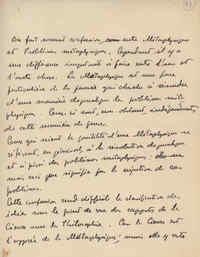 On fait souvent confusion entre Métaphysique
et Problème métaphysique. Cependant il y a
une différence importante à faire entre l'un et
l'autre chose. La Métaphysique est une forme
particulière de la pensée qui cherche à résoudre
d'une manière dogmatique le problème méta-
physique. Ceux-ci sont, eux
de cette manière de penser.
Ceux qui nient la possibilité d'une Métaphysique se
réfèrent, en général, à la résolution dogmatique
et à priori des problèmes métaphysiques;
mais ceci ne signifie pas le rejet de ces
problèmes.
Cette confusion rend difficile la clarification des
idées sous le point de vue des rapports de la
Science avec la Philosophie. Car la Science est
l'opposé de la Métaphysique; mais elle y